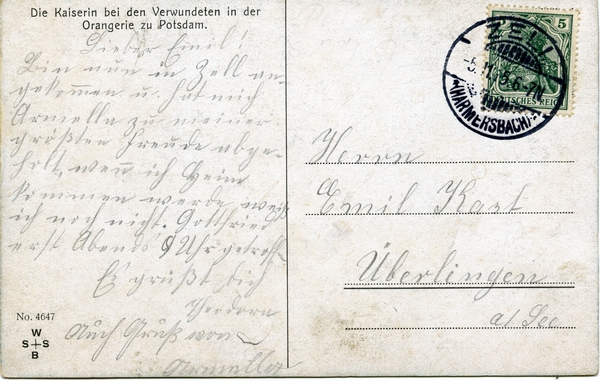 Die Kaiserin bei den Verwundeten in der
Orangerie zu Potsdam.
Lieber Emil!
Bin nun in Zell an-
gekommen u. hat mich
Armella zu meiner
größten Freude abge-
holt, wenn ich Heim
kommen werde weiß
ich noch nicht. Gottfried
erst Abends 9 Uhr getroffen
Es grüßt dich
Theodora
Auch Gruß von
Armella
No. 4647
W
S S
B
ZELL
(HARMERSBACH)
5
DEUTSCHES REICH
Herrn
Emil Karst
Überlingen
a/See